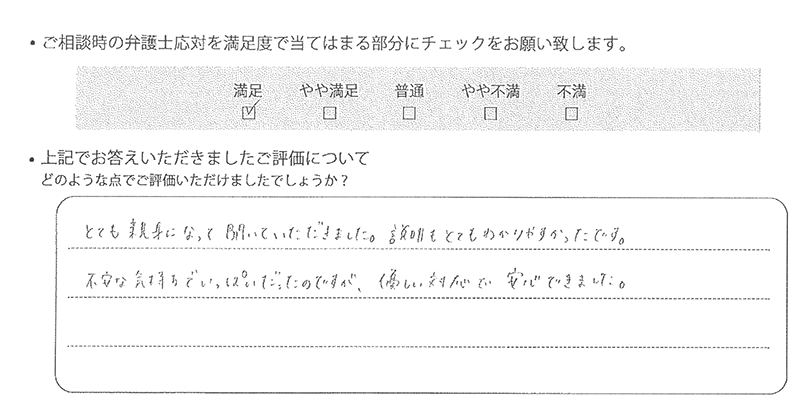 ・ご相談時の弁護士応対を満足度で当てはまる部分にチェックをお願い致します。
満足 やや満足 普通 やや不満 不満
☑ □ □ □ □
・上記でお答えいただきましたご評価について
どのような点でご評価いただけましたでしょうか？
とても親身になって聞いていただきました。説明もとてもわかりやすかったです。
不安な気持ちでいっぱいだったのですが、優しい対応で安心できました。